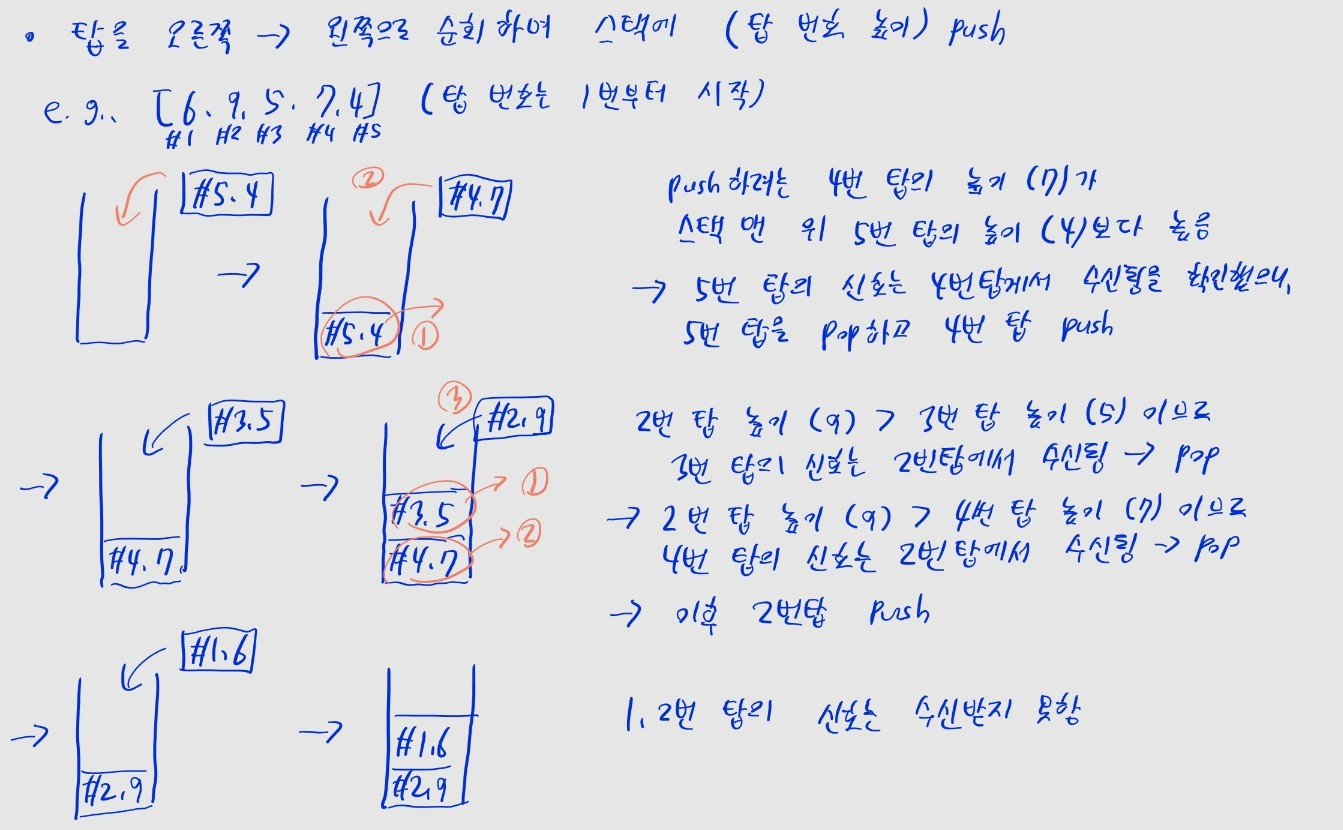 • 탑을 오른쪽 → 왼쪽으로 순회하며 스택에 (탑 번호, 높이) push
e.g.. [6, 9, 5, 7, 4] (탑 번호는 1번부터 시작)
#1 #2 #3 #4 #5
#5.4
→
② #4.7
#5.4 ①
push하려는 4번 탑의 높이 (7)가
스택 맨 위 5번 탑의 높이 (4)보다 높음
→ 5번 탑의 신호는 4번탑에서 수신됨을 확인했으니,
5번 탑을 pop하고 4번 탑 push
→
#3.5
#4.7
→
③ #2.9
#3.5 ①
#4.7 ②
2번 탑 높이 (9) > 3번 탑 높이 (5) 이므로
3번 탑의 신호는 2번탑에서 수신됨 → pop
→ 2번 탑 높이 (9) > 4번 탑 높이 (7) 이므로
4번 탑의 신호는 2번탑에서 수신됨 → pop
→ 이후 2번탑 push
→
#1.6
#2.9
→
#1.6
#2.9
1, 2번 탑의 신호는 수신받지 못함